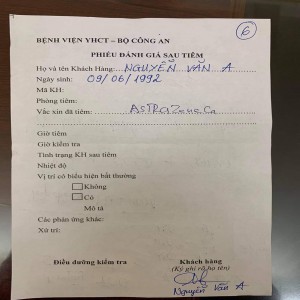 6
BỆNH VIỆN YHCT – BỘ CÔNG AN
PHIẾU ĐÁNH GIÁ SAU TIÊM
Họ và tên Khách Hàng: NGUYỄN VĂN A
Ngày sinh: 09/06/1992
Mã KH:
Phòng tiêm:
Vắc xin đã tiêm: ASTRAZeneCa
Giờ tiêm
Giờ kiểm tra
Tình trạng KH sau tiêm
Nhiệt độ
Vị trí có biểu hiện bất thường
Không
Có
Mô tả
Các phản ứng khác:
Xử trí:
Điều dưỡng kiểm tra Khách hàng
(Ký ghi rõ họ tên)
Nguyễn Văn A